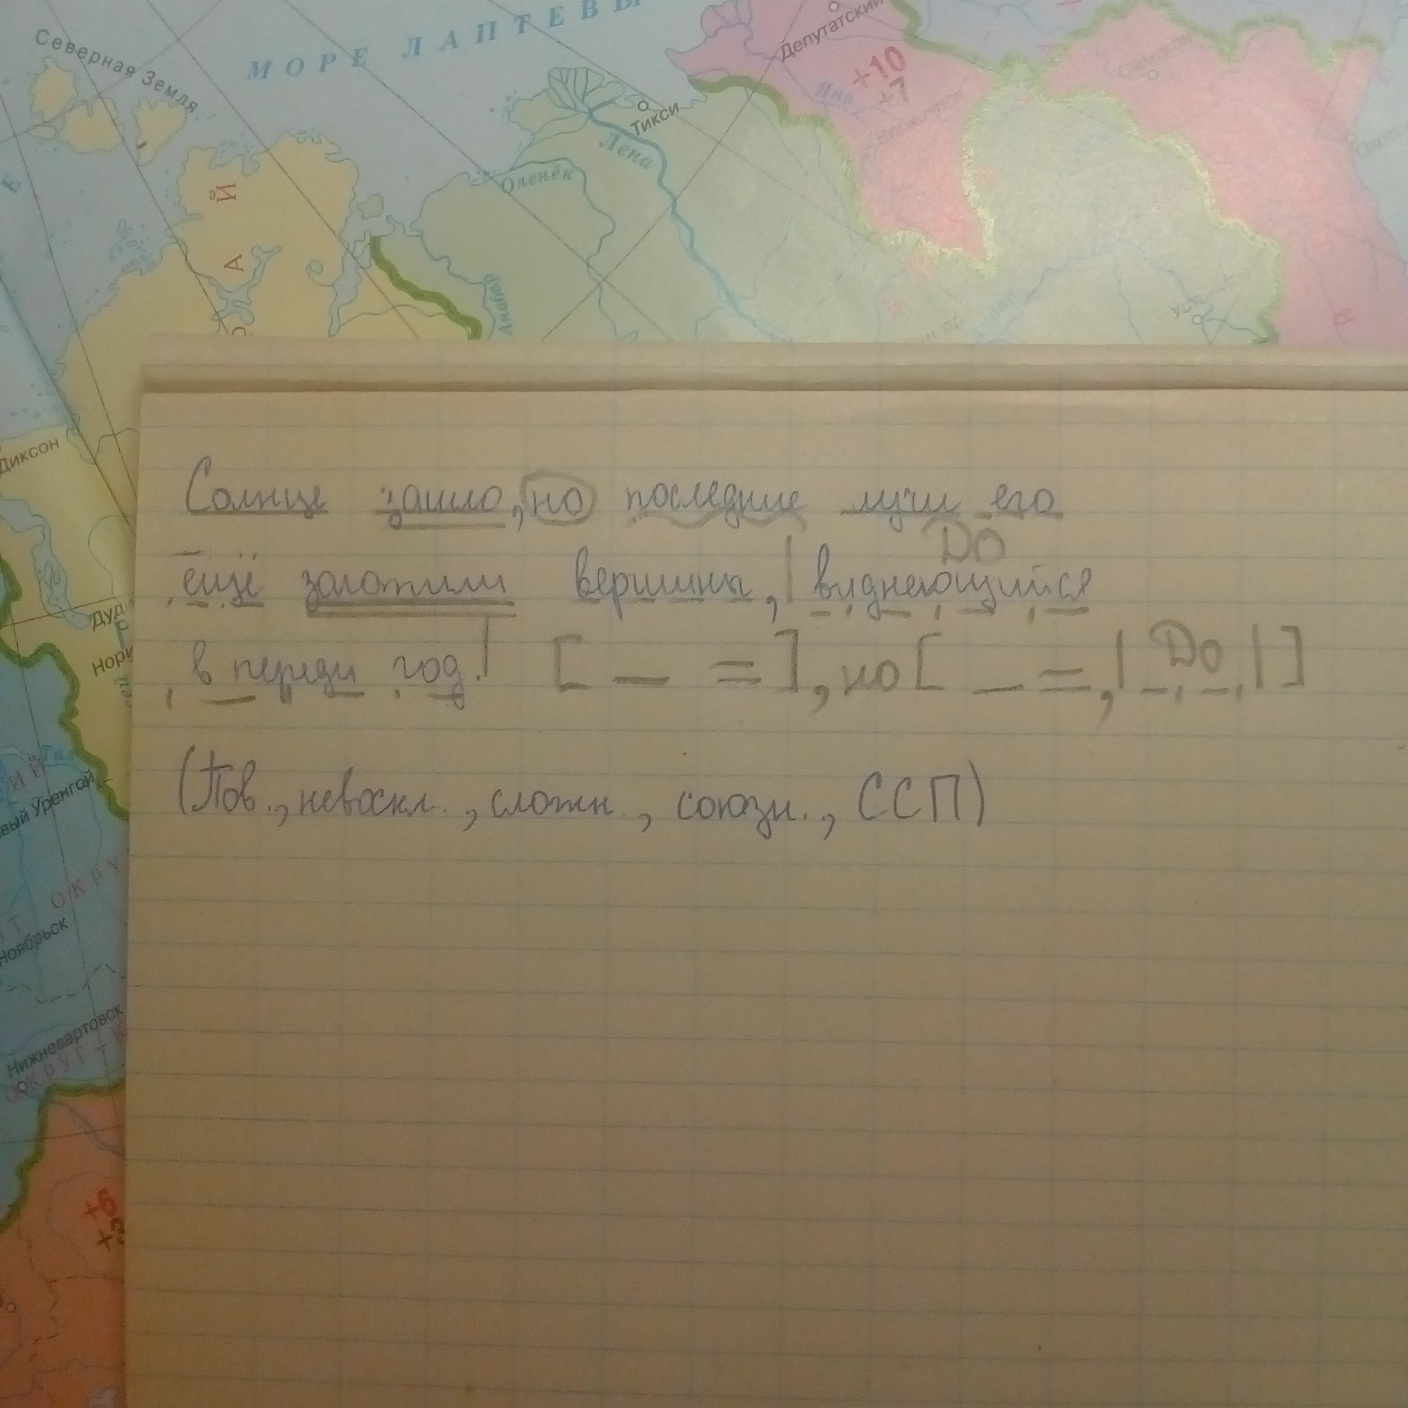 Северная Земля
МОРЕ ЛАПТЕВЫ
Депутатский
+10
+7
Яна
Тикси
Лена
Оленёк
Анабар
Й
А
Диксон
Солнце зашло, но последние лучи его
ДО
ещё золотили вершина, | виднеющийся
в переди год.| [ — = ], но [ — =, | ДО | ]
(Пов., невоскл., сложн., союзн., ССП)
Дуди
Нори
вый Уренгой
ОКРУ
Ноябрьск
Нижневартовск
ОКРУГ
+6
+3